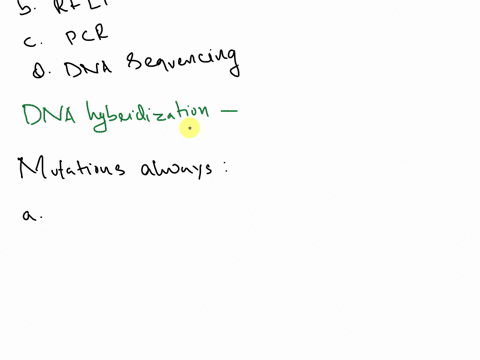 b. RFLP
c. PCR
d. DNA Sequencing
DNA hybridization —
Mutations always :
a.